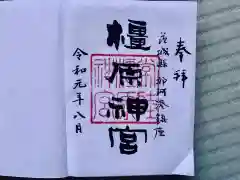 奉拝
茨城縣那珂湊鎮座
橿原神宮
令和元年八月